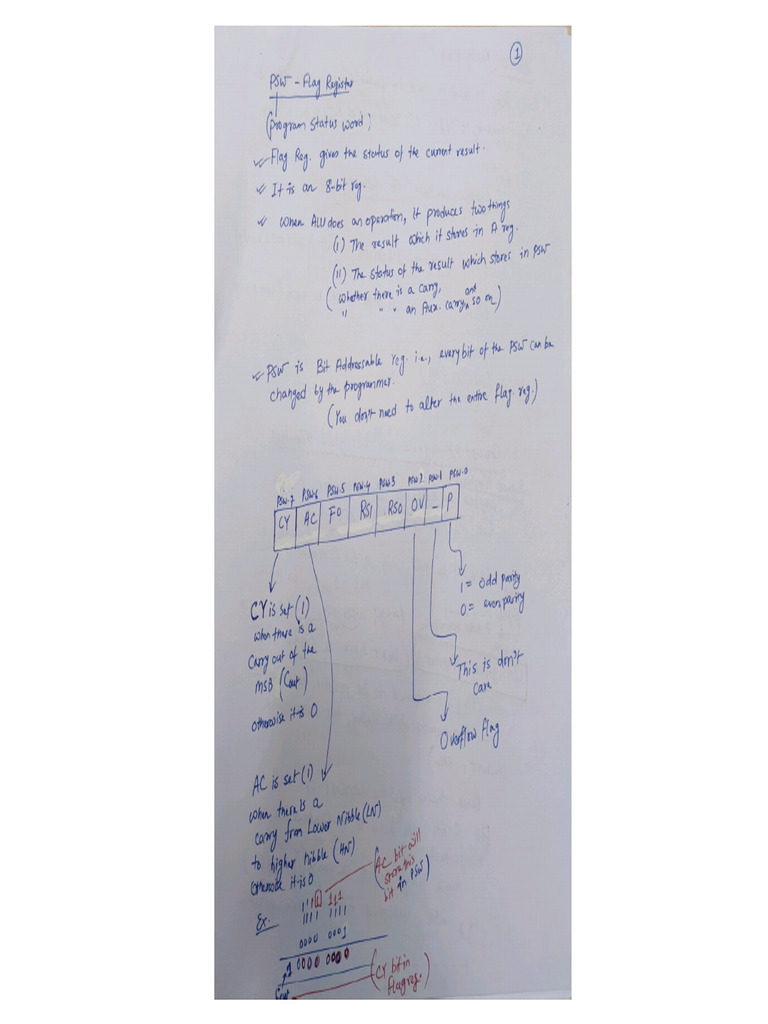 1
PSW - Flag Register
(Program Status Word)
Flag Reg. gives the status of the current result.
It is an 8-bit reg.
When ALU does an operation, it produces two things
(i) The result which it stores in A reg.
(ii) The status of the result which stores in PSW
(Whether there is a carry,
" " " an Aux. carry and so on)
PSW is Bit Addressable reg. i.e., every bit of the PSW can be
changed by the programmer.
(You don't need to alter the entire flag. reg.)
PSW.7 PSW.6 PSW.5 PSW.4 PSW.3 PSW.2 PSW.1 PSW.0
CY AC F0 RS1 RS0 OV - P
1 = odd parity
0 = even parity
CY is set (1)
when there is a
Carry out of the
MSB (Cout)
otherwise it is 0
This is don't
care
Overflow flag
AC is set (1)
when there is a
carry from Lower Nibble (LN)
to higher Nibble (HN)
otherwise it is 0
(AC bit will
store this
bit in PSW)
Ex.
1111 111
1111 1111
0000 0001
1 0000 0000
Cout
(CY bit in
flag reg.)